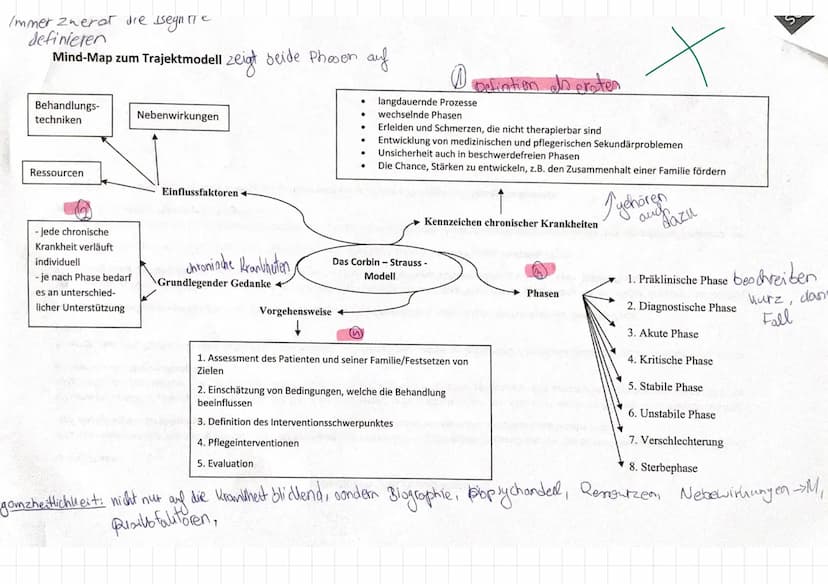 Immer zuerst die Begriffe
definieren
Mind-Map zum Trajektmodell zeigt beide Phasen auf
① Definition als erstes
Behandlungs-
techniken
Nebenwirkungen
Ressourcen
Einflussfaktoren
• langdauernde Prozesse
• wechselnde Phasen
• Erleiden und Schmerzen, die nicht therapierbar sind
• Entwicklung von medizinischen und pflegerischen Sekundärproblemen
• Unsicherheit auch in beschwerdefreien Phasen
• Die Chance, Stärken zu entwickeln, z.B. den Zusammenhalt einer Familie fördern
Kennzeichen chronischer Krankheiten
gehören
auch
dazu
- jede chronische
Krankheit verläuft
individuell
- je nach Phase bedarf
es an unterschied-
licher Unterstützung
chronische Krankheiten
Grundlegender Gedanke
Das Corbin – Strauss -
Modell
Vorgehensweise
Phasen
1. Präklinische Phase beschreiben
kurz, dann
Fall
2. Diagnostische Phase
3. Akute Phase
4. Kritische Phase
5. Stabile Phase
6. Unstabile Phase
7. Verschlechterung
8. Sterbephase
1. Assessment des Patienten und seiner Familie/Festsetzen von
Zielen
2. Einschätzung von Bedingungen, welche die Behandlung
beeinflussen
3. Definition des Interventionsschwerpunktes
4. Pflegeinterventionen
5. Evaluation
ganzheitlichkeit: nicht nur auf die Krankheit blickend, sondern Biographie, Ressourcen, Nebenwirkungen → M,